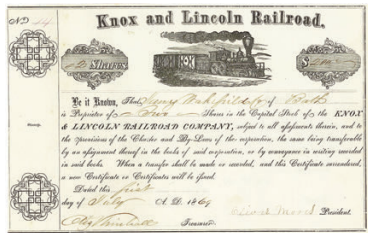 No 44
Knox and Lincoln Railroad.
2 Shares
$200
Be it Known, That Henry Wakefield of Bath
is Proprietor of Two Shares in the Capital Stock of the KNOX
& LINCOLN RAILROAD COMPANY, subject to all assessments thereon, and to
the provisions of the Charter and By-Laws of the corporation, the same being transferable
by an assignment thereof in the books of said corporation, or by conveyance in writing recorded
in said books. When a transfer shall be made or recorded, and this Certificate surrendered,
a new Certificate or Certificates will be issued.
Dated this first
day of July A. D. 1869
President.
Treasurer.